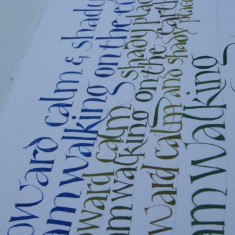 oward calm & shady
am walking on the
oward calm shady pla
am walking on the earth
ward calm and shady place
am walking